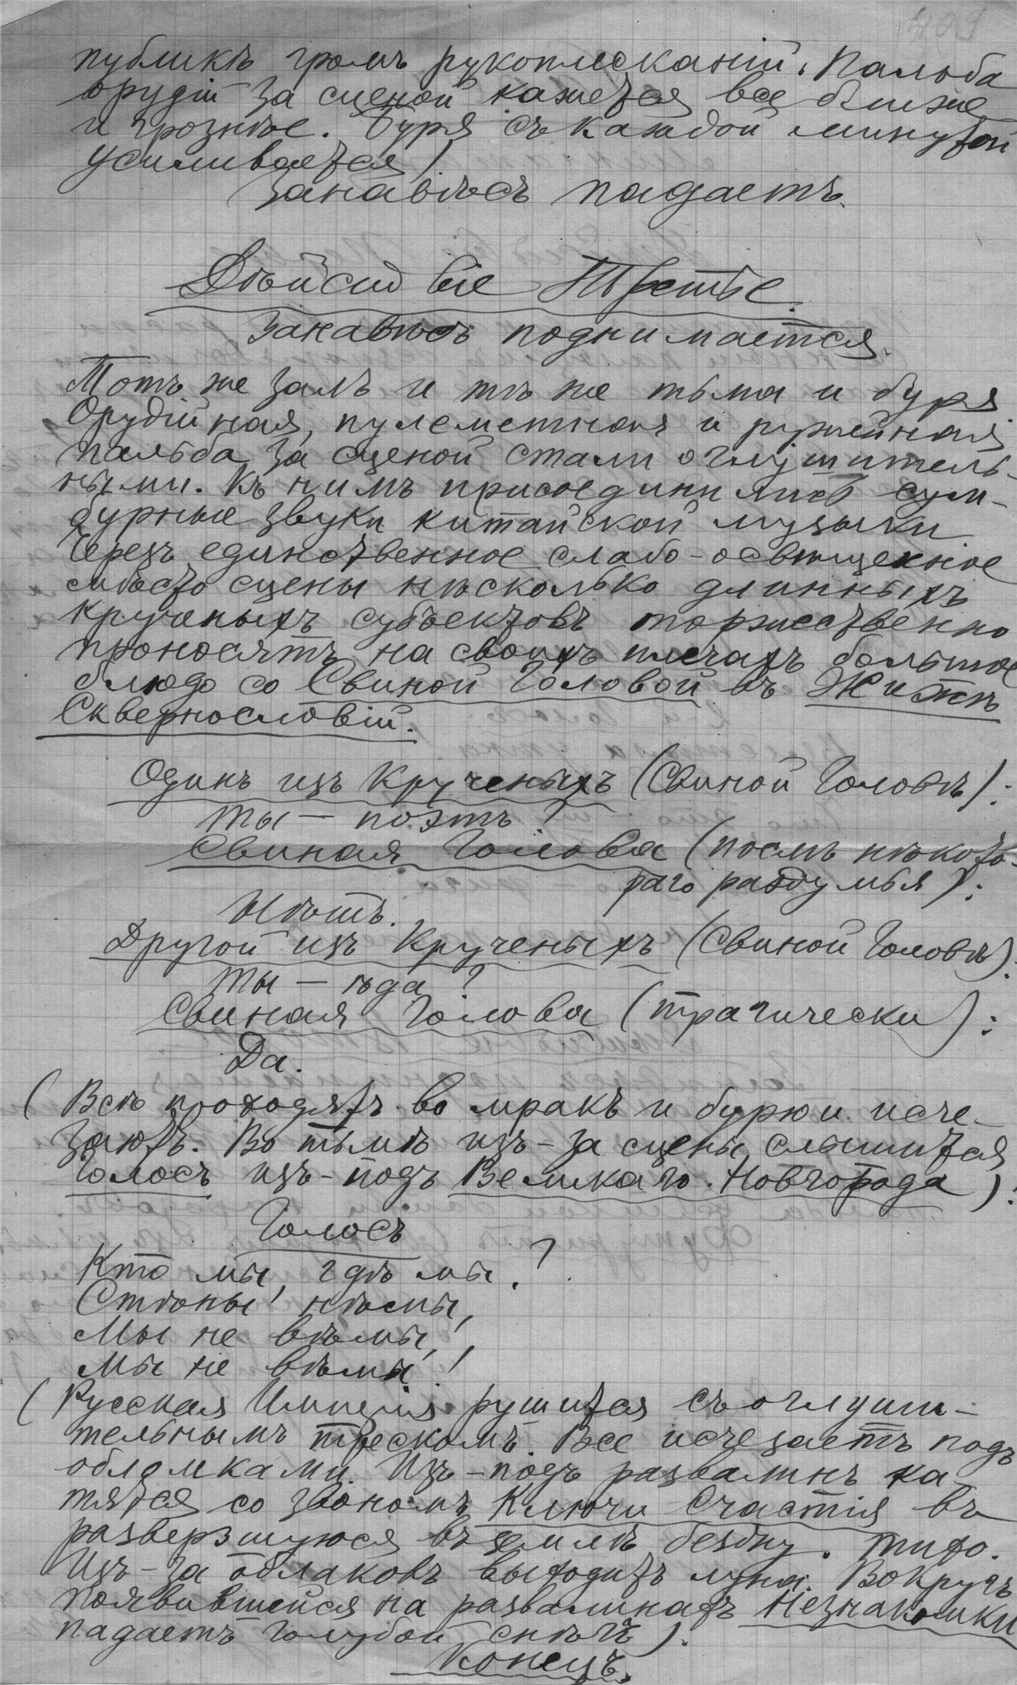 409
публикѣ громъ рукоплесканій. Пальба
орудій за сценой кажется все ближе
и грознѣе. Буря съ каждой минутой
усиливается)
Занавѣсъ падаетъ.
Дѣйствіе Третье.
Занавѣсъ поднимается.
Тотъ же залъ и тѣ же тьма и буря.
Орудійная, пулеметная и ружейная
пальба за сценой стали оглушитель-
ными. Къ нимъ присоединились сум-
бурные звуки китайской музыки.
Черезъ единственное слабо-освѣщенное
мѣсто сцены нѣсколько длинныхъ
крученыхъ субъектовъ торжественно
проносятъ на своихъ плечахъ большое
блюдо со Свиной Головой въ Жижѣ
Сквернословій.
Одинъ изъ Крученыхъ (Свиной Головѣ):
Ты — поэтъ?
Свиная Голова (послѣ нѣкото-
раго раздумья):
Нѣтъ.
Другой изъ Крученыхъ (Свиной Головѣ):
Ты — ѣда?
Свиная Голова (трагически):
Да.
(Всѣ проходятъ во мракъ и бурю и исче-
заютъ. Во тьмѣ изъ-за сцены слышится
Голосъ изъ-подъ Великаго Новгорода):
Голосъ
Кто мы, гдѣ мы?
Стѣны нѣмы,
Мы не вѣмы,
Мы не вѣмы!
(Русская Имперія рушится съ оглуши-
тельнымъ трескомъ. Все исчезаетъ подъ
обломками. Изъ-подъ развалинъ ка-
тятся со звономъ Ключи Счастія въ
разверзшуюся въ землѣ бездну. Тихо.
Изъ-за облаковъ выходитъ луна. Вокругъ
появившейся на развалинахъ Незнакомки
падаетъ голубой снѣгъ).
Конецъ.